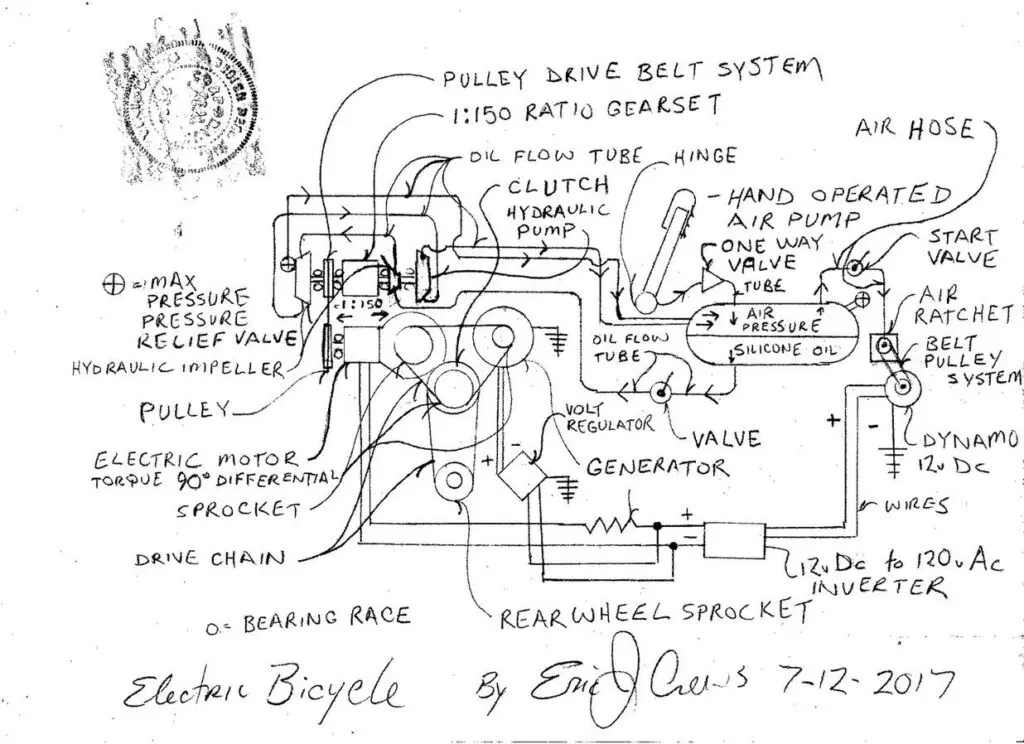 PULLEY DRIVE BELT SYSTEM
1:150 RATIO GEARSET
AIR HOSE
OIL FLOW TUBE
HINGE
CLUTCH
HAND OPERATED
AIR PUMP
HYDRAULIC
PUMP
ONE WAY
VALVE
TUBE
START
VALVE
⊕ = MAX
PRESSURE
PRESSURE
RELIEF VALVE
1:150
AIR
PRESSURE
SILICONE OIL
AIR
RATCHET
BELT
PULLEY
SYSTEM
OIL FLOW
TUBE
HYDRAULIC IMPELLER
PULLEY
VOLT
REGULATOR
VALVE
+
-
DYNAMO
12v DC
ELECTRIC MOTOR
TORQUE 90° DIFFERENTIAL
-
+
GENERATOR
SPROCKET
WIRES
DRIVE CHAIN
+
-
12v DC to 120v AC
INVERTER
O = BEARING RACE
REAR WHEEL SPROCKET
Electric Bicycle By Eric J Crews 7-12-2017